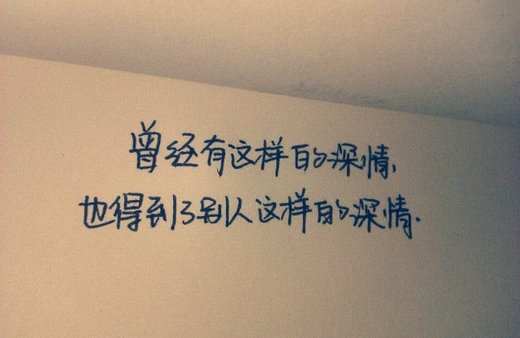 曾经有这样的深情,
也得到了别人这样的深情.